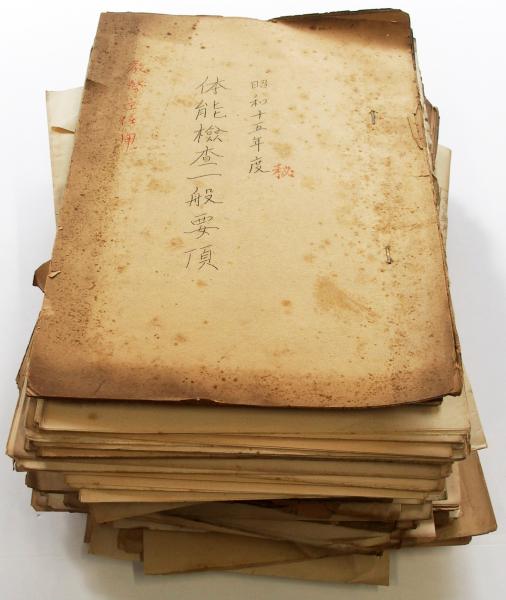 昭和十五年度
秘
体能檢查一般要項